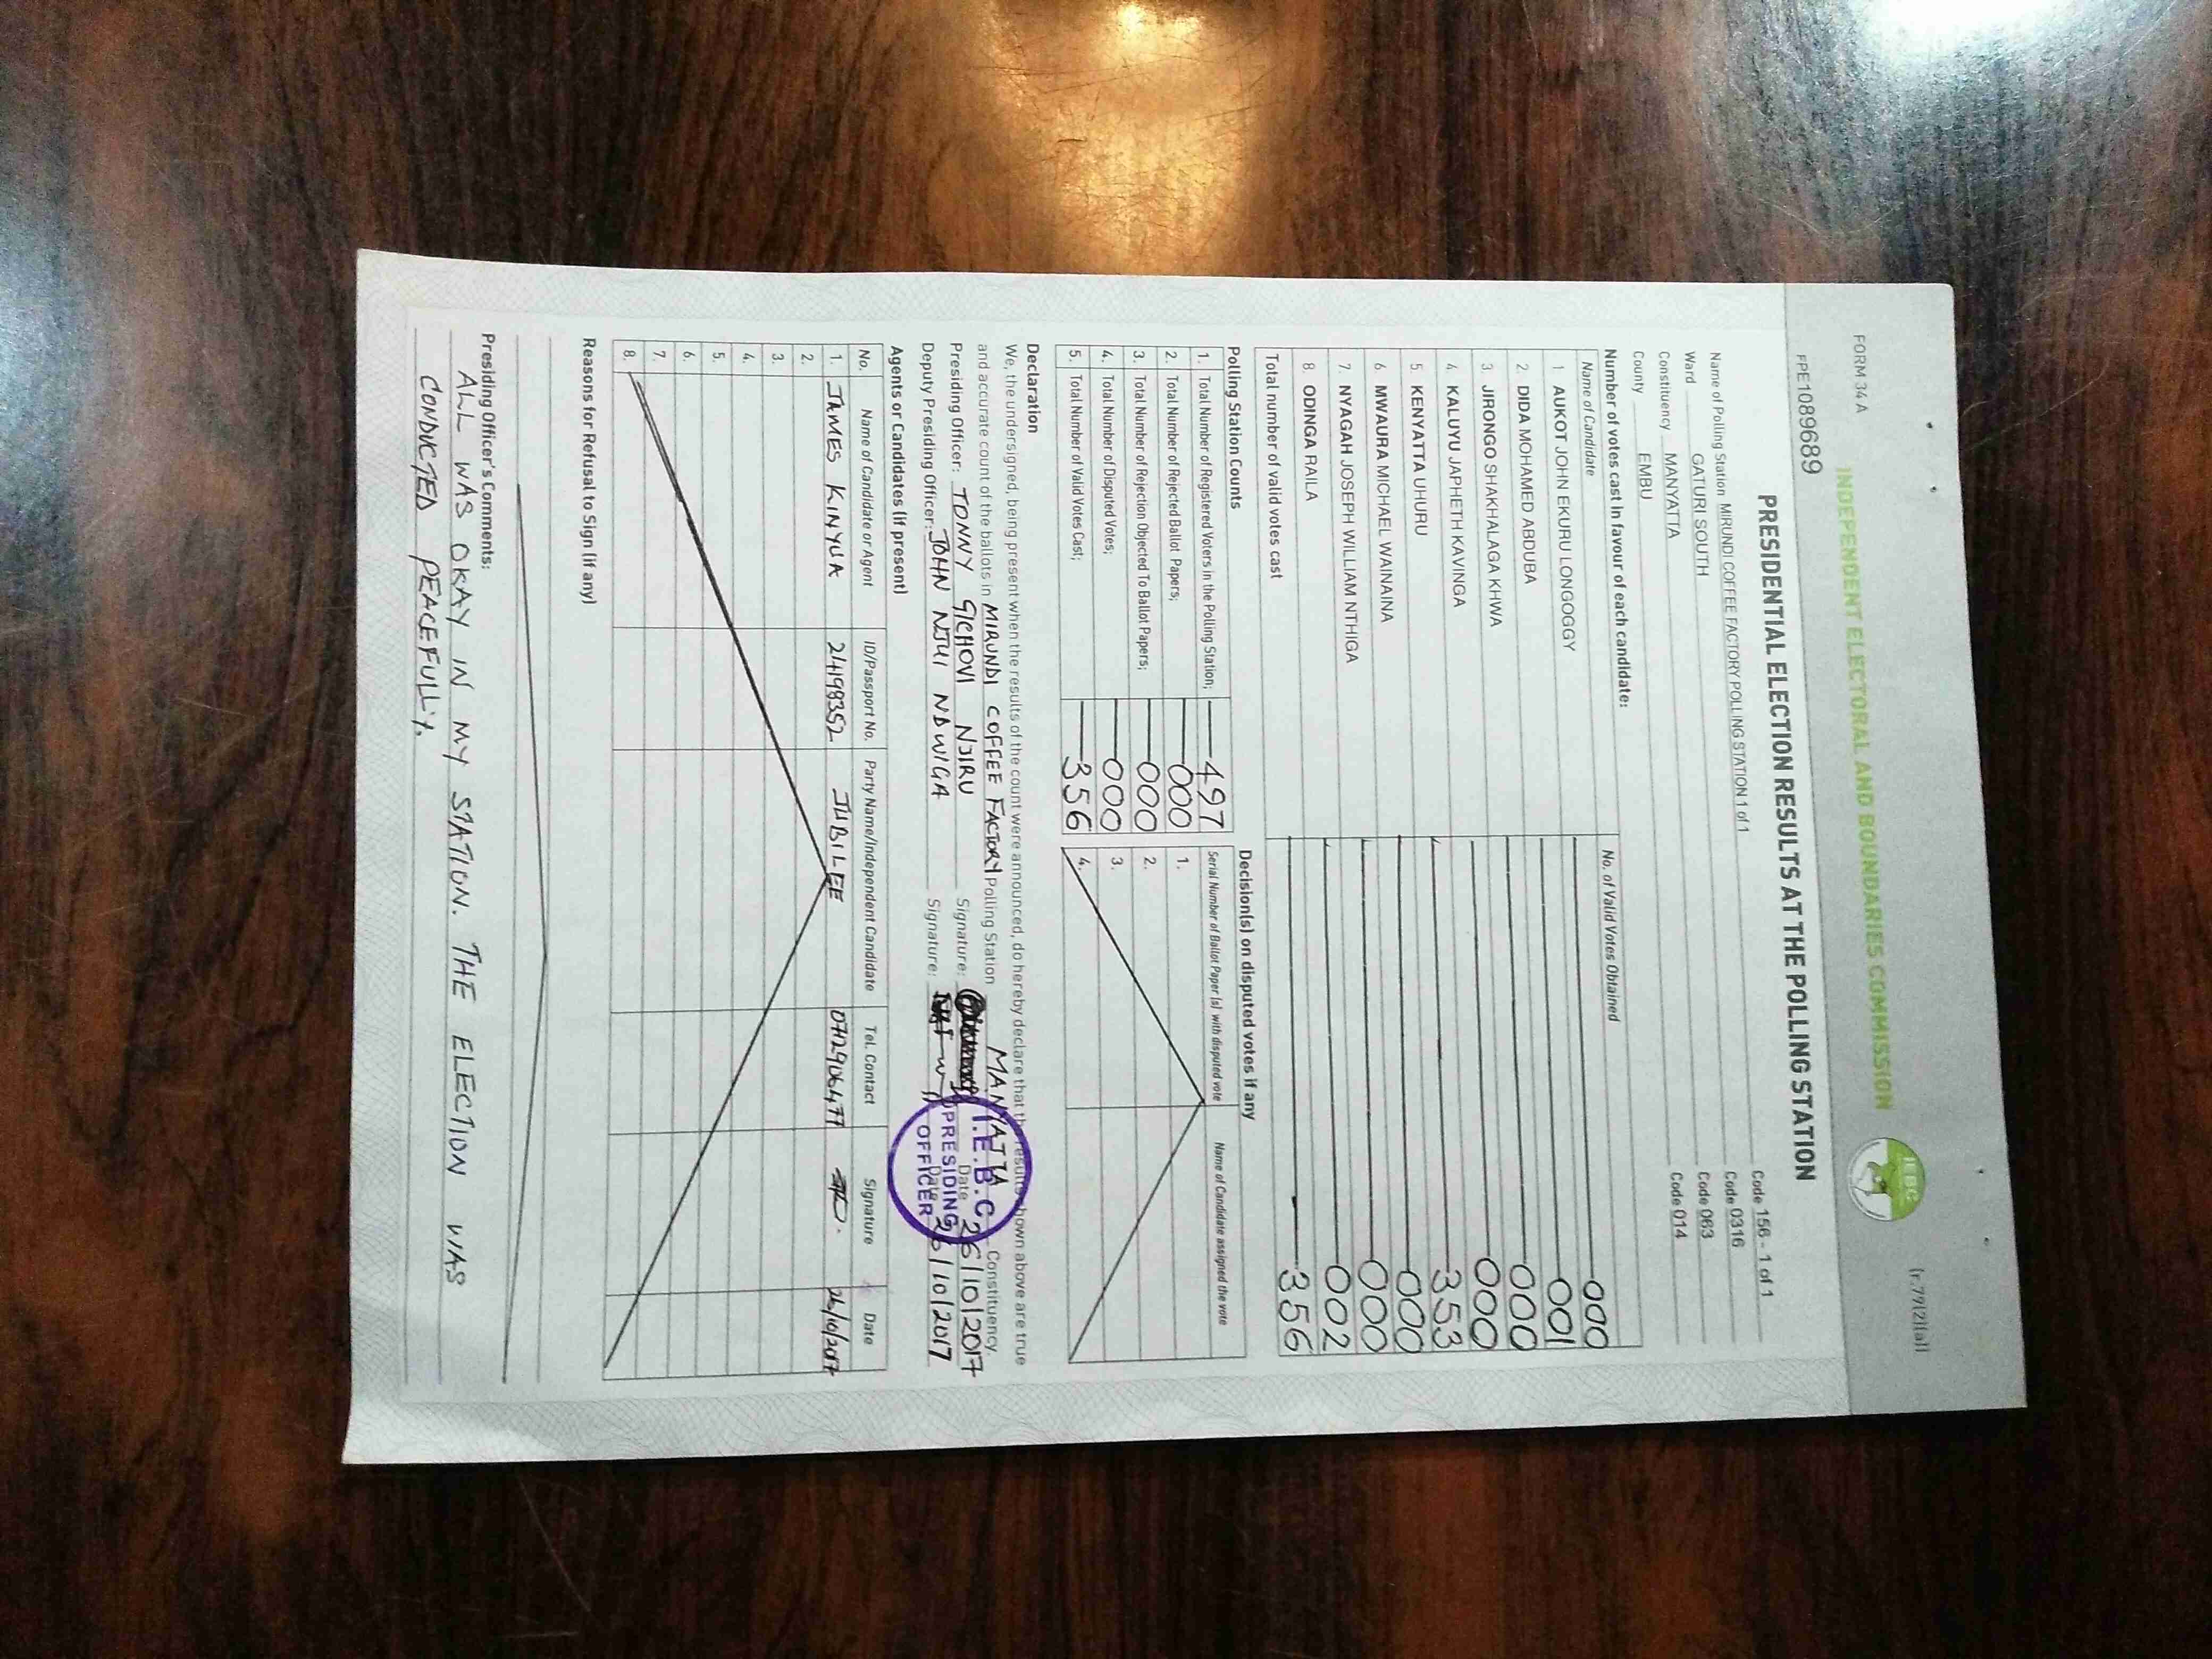 FORM 34A
(r.79(2)(a))
FPE1089689
INDEPENDENT ELECTORAL AND BOUNDARIES COMMISSION
IEBC
PRESIDENTIAL ELECTION RESULTS AT THE POLLING STATION
Name of Polling Station MIRUNDI COFFEE FACTORY POLLING STATION 1 of 1 Code 156 - 1 of 1
Ward GATURI SOUTH Code 0316
Constituency MANYATTA Code 063
County EMBU Code 014
Number of votes cast in favour of each candidate:
Name of Candidate No. of Valid Votes Obtained
1 AUKOT JOHN EKURU LONGOGGY 000
2 DIDA MOHAMED ABDUBA 001
3 JIRONGO SHAKHALAGA KHWA 000
4 KALUYU JAPHETH KAVINGA 000
5 KENYATTA UHURU 353
6 MWAURA MICHAEL WAINAINA 000
7 NYAGAH JOSEPH WILLIAM NTHIGA 000
8 ODINGA RAILA 002
Total number of valid votes cast 356
Polling Station Counts
1. Total Number of Registered Voters in the Polling Station; 497
2. Total Number of Rejected Ballot Papers; 000
3. Total Number of Rejection Objected To Ballot Papers; 000
4. Total Number of Disputed Votes; 000
5. Total Number of Valid Votes Cast; 356
Decision(s) on disputed votes if any
Serial Number of Ballot Paper (s) with disputed vote Name of Candidate assigned the vote
1.
2.
3.
4.
Declaration
We, the undersigned, being present when the results of the count were announced, do hereby declare that the results shown above are true
and accurate count of the ballots in MIRUNDI COFFEE FACTORY Polling Station MANYATTA Constituency.
Presiding Officer: TONNY GICHOVI NJIRU Signature: Date 26/10/2017
Deputy Presiding Officer: JOHN NJUI NDWIGA Signature: Date 26/10/2017
I.E.B.C
PRESIDING
OFFICER
Agents or Candidates (if present)
No. Name of Candidate or Agent ID/Passport No. Party Name/Independent Candidate Tel. Contact Signature Date
1. JAMES KINYUA 24198352 JUBILEE 0712906477 26/10/2017
2.
3.
4.
5.
6.
7.
8.
Reasons for Refusal to Sign (if any)
Presiding Officer's Comments:
ALL WAS OKAY IN MY STATION. THE ELECTION WAS
CONDUCTED PEACEFULLY.